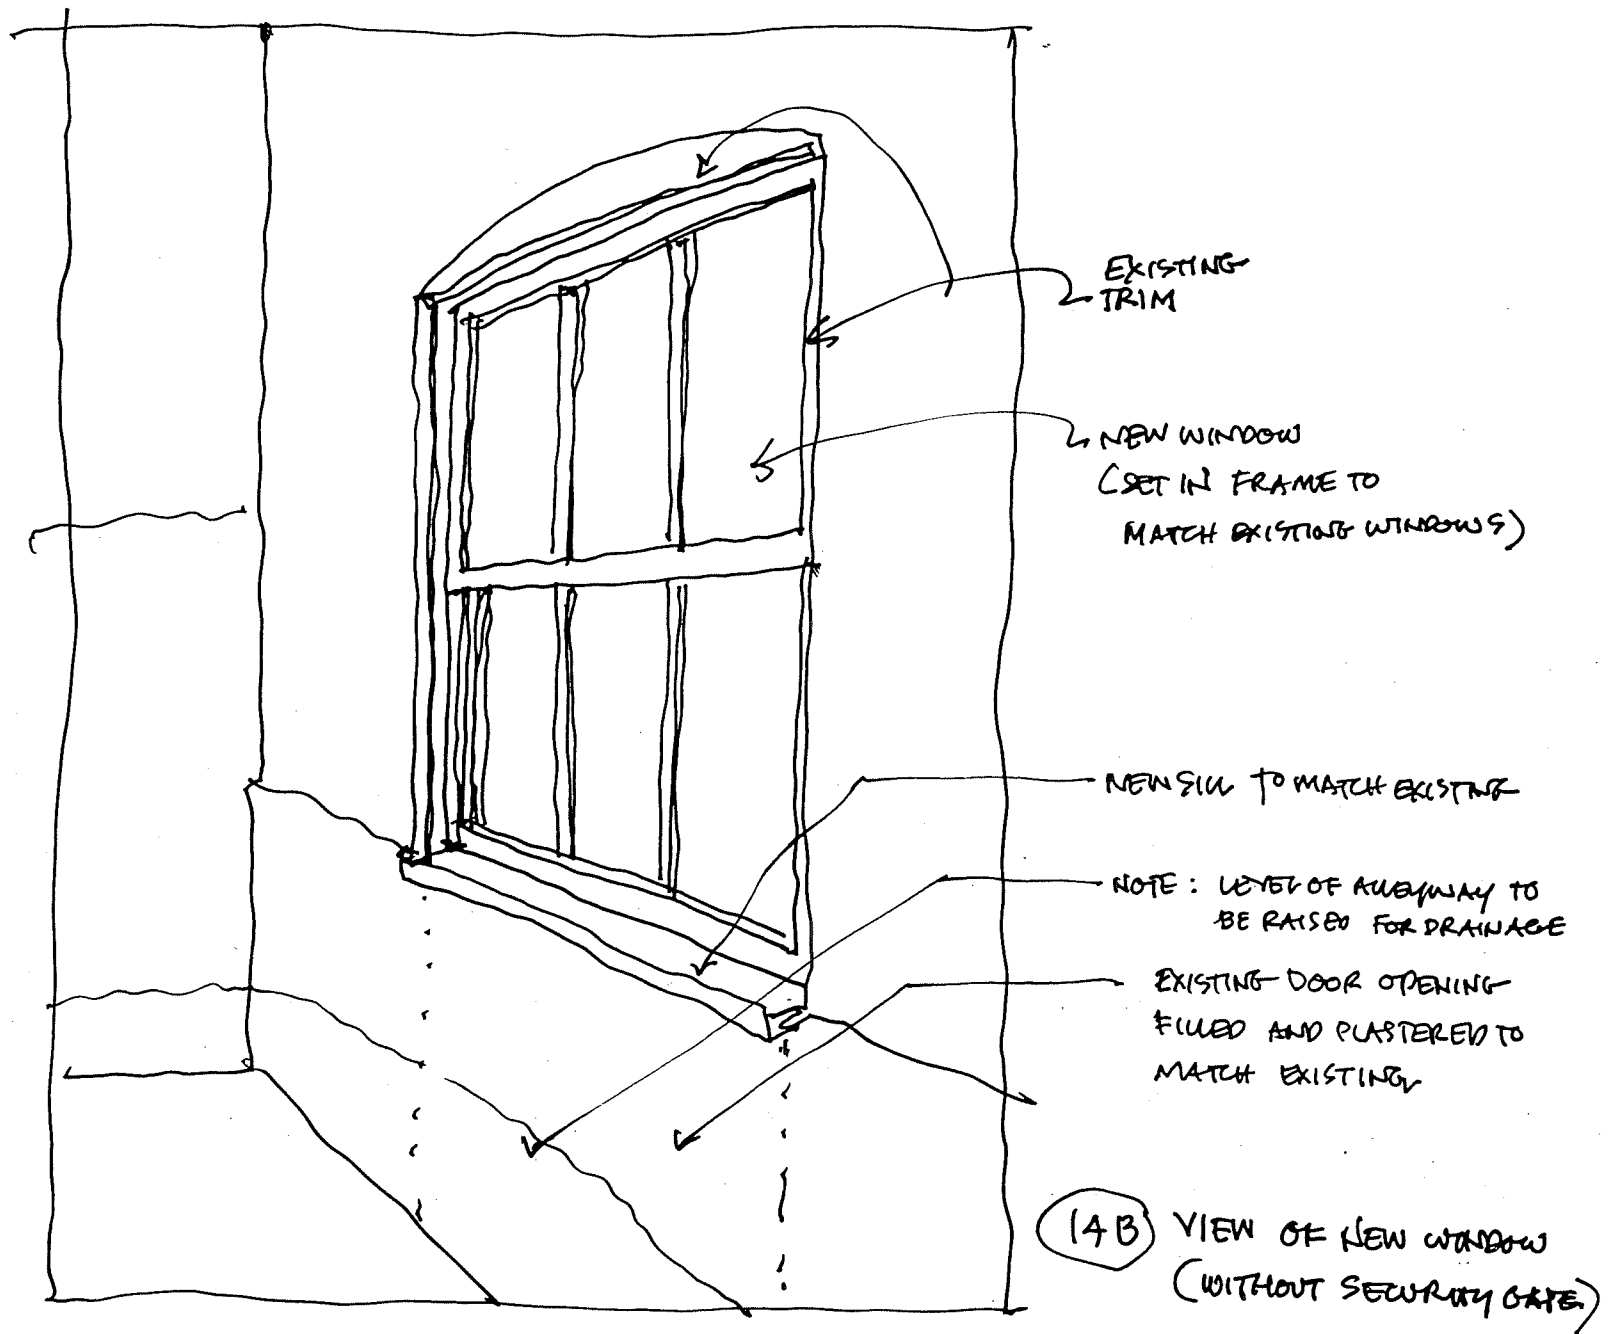 EXISTING
TRIM
NEW WINDOW
(SET IN FRAME TO
MATCH EXISTING WINDOWS)
NEW SILL TO MATCH EXISTING
NOTE: LEVEL OF ALLEYWAY TO
BE RAISED FOR DRAINAGE
EXISTING DOOR OPENING
FILLED AND PLASTERED TO
MATCH EXISTING
14B VIEW OF NEW WINDOW
(WITHOUT SECURITY GATE)